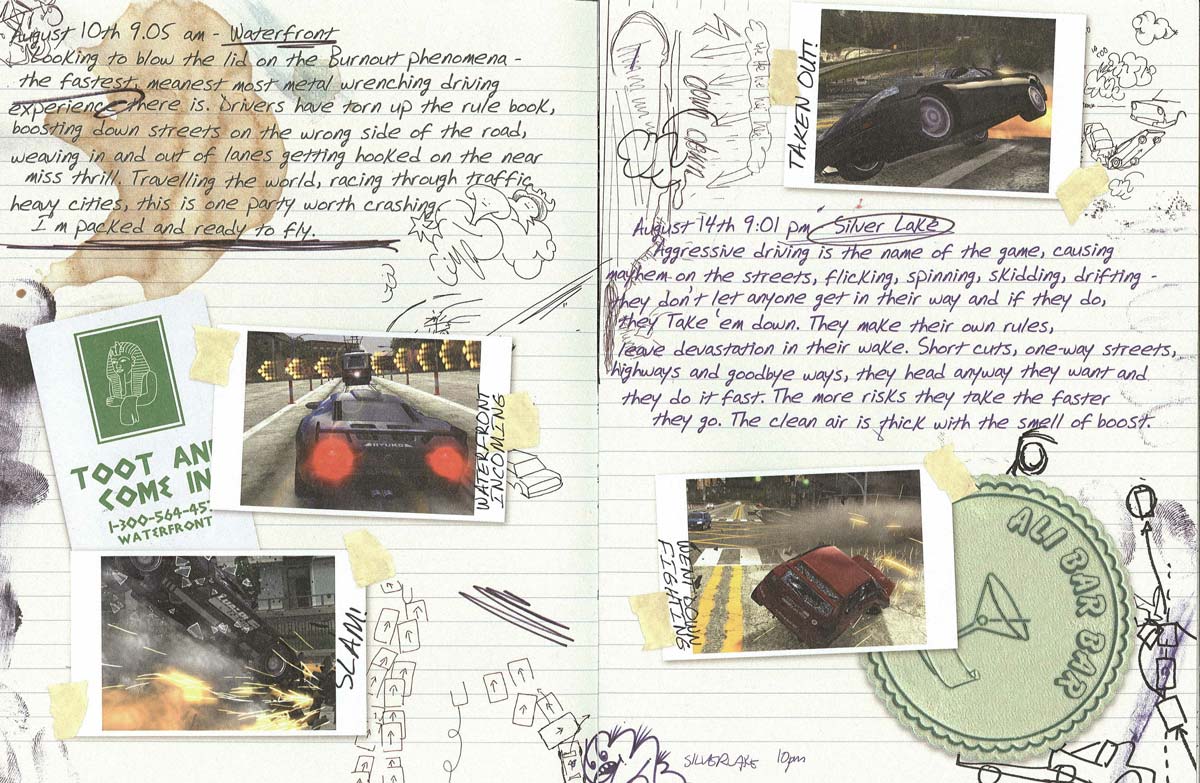 August 10th 9.05 am - Waterfront
Looking to blow the lid on the Burnout phenomena -
the fastest, meanest most metal wrenching driving
experience there is. Drivers have torn up the rule book,
boosting down streets on the wrong side of the road,
weaving in and out of lanes getting hooked on the near
miss thrill. Travelling the world, racing through traffic
heavy cities, this is one party worth crashing.
I'm packed and ready to fly.
TOOT AN
COME IN
1-300-564-45
WATERFRONT
WATERFRONT
INCOMING
SLAM!
down down
TAKEN OUT!
August 14th 9:01 pm Silver Lake
Aggressive driving is the name of the game, causing
mayhem on the streets, flicking, spinning, skidding, drifting -
they don't let anyone get in their way and if they do,
they Take 'em down. They make their own rules,
leave devastation in their wake. Short cuts, one-way streets,
highways and goodbye ways, they head anyway they want and
they do it fast. The more risks they take the faster
they go. The clean air is thick with the smell of boost.
WENT DOWN
FIGHTING
ALI BAR BAR
SILVERLAKE 10pm